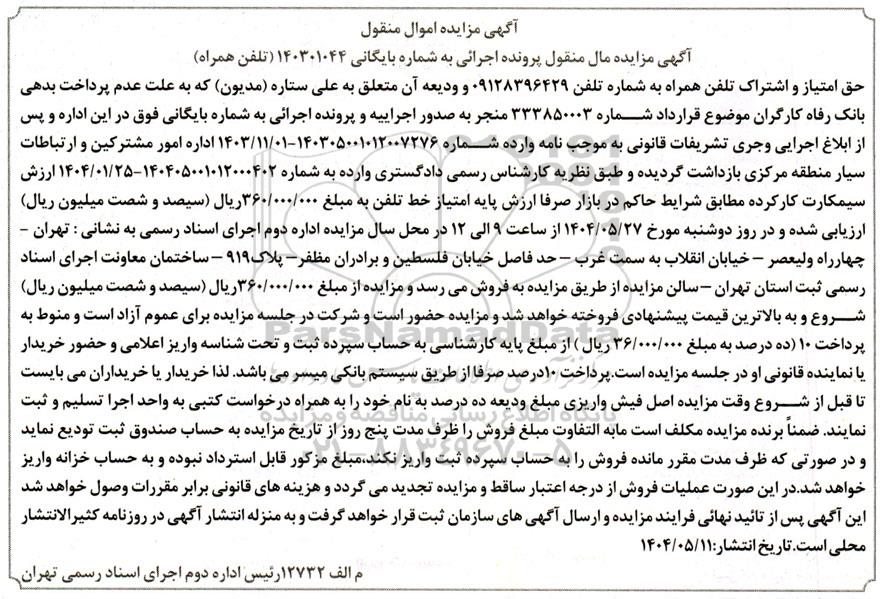 آگهی مزایده اموال منقول
آگهی مزایده مال منقول پرونده اجرائی به شماره بایگانی ۱۴۰۳۰۱۰۴۴ (تلفن همراه)
حق امتیاز و اشتراک تلفن همراه به شماره تلفن ۰۹۱۲۸۳۹۶۴۲۹ و ودیعه آن متعلق به علی ستاره (مدیون) که به علت عدم پرداخت بدهی
بانک رفاه کارگران موضوع قرارداد شماره ۳۳۳۸۵۰۰۰۳ منجر به صدور اجراییه و پرونده اجرائی به شماره بایگانی فوق در این اداره و پس
از ابلاغ اجرایی وجری تشریفات قانونی به موجب نامه وارده شماره ۱۴۰۳۰۵۰۰۱۰۱۲۰۰۷۲۷۶-۱۴۰۳/۱۱/۰۱ اداره امور مشترکین و ارتباطات
سیار منطقه مرکزی بازداشت گردیده و طبق نظریه کارشناس رسمی دادگستری وارده به شماره ۱۴۰۴۰۵۰۰۱۰۱۲۰۰۰۴۰۲-۱۴۰۴/۰۱/۲۵ ارزش
سیمکارت کارکرده مطابق شرایط حاکم در بازار صرفا ارزش پایه امتیاز خط تلفن به مبلغ ۳۶۰/۰۰۰/۰۰۰ریال (سیصد و شصت میلیون ریال)
ارزیابی شده و در روز دوشنبه مورخ ۱۴۰۴/۰۵/۲۷ از ساعت ۹ الی ۱۲ در محل سال مزایده اداره دوم اجرای اسناد رسمی به نشانی : تهران –
چهارراه ولیعصر – خیابان انقلاب به سمت غرب – حد فاصل خیابان فلسطین و برادران مظفر– پلاک۹۱۹ – ساختمان معاونت اجرای اسناد
رسمی ثبت استان تهران –سالن مزایده از طریق مزایده به فروش می رسد و مزایده از مبلغ ۳۶۰/۰۰۰/۰۰۰ریال (سیصد و شصت میلیون ریال)
شروع و به بالاترین قیمت پیشنهادی فروخته خواهد شد و مزایده حضور است و شرکت در جلسه مزایده برای عموم آزاد است و منوط به
پرداخت ۱۰ (ده درصد به مبلغ ۳۶/۰۰۰/۰۰۰ ریال ) از مبلغ پایه کارشناسی به حساب سپرده ثبت و تحت شناسه واریز اعلامی و حضور خریدار
یا نماینده قانونی او در جلسه مزایده است.پرداخت ۱۰درصد صرفا از طریق سیستم بانکی میسر می باشد. لذا خریدار یا خریداران می بایست
تا قبل از شروع وقت مزایده اصل فیش واریزی مبلغ ودیعه ده درصد به نام خود را به همراه درخواست کتبی به واحد اجرا تسلیم و ثبت
نمایند. ضمناً برنده مزایده مکلف است مابه التفاوت مبلغ فروش را ظرف مدت پنج روز از تاریخ مزایده به حساب صندوق ثبت تودیع نماید
و در صورتی که ظرف مدت مقرر مانده فروش را به حساب سپرده ثبت واریز نکند،مبلغ مزکور قابل استرداد نبوده و به حساب خزانه واریز
خواهد شد.در این صورت عملیات فروش از درجه اعتبار ساقط و مزایده تجدید می گردد و هزینه های قانونی برابر مقررات وصول خواهد شد
این آگهی پس از تائید نهائی فرایند مزایده و ارسال آگهی های سازمان ثبت قرار خواهد گرفت و به منزله انتشار آگهی در روزنامه کثیرالانتشار
محلی است.تاریخ انتشار:۱۴۰۴/۰۵/۱۱
م الف ۱۲۷۳۲رئیس اداره دوم اجرای اسناد رسمی تهران
ParsNamadData
پایگاه اطلاع رسانی مناقصه و مزایده
۰۲۱-۸۸۳۴۹۶۷۰-۵